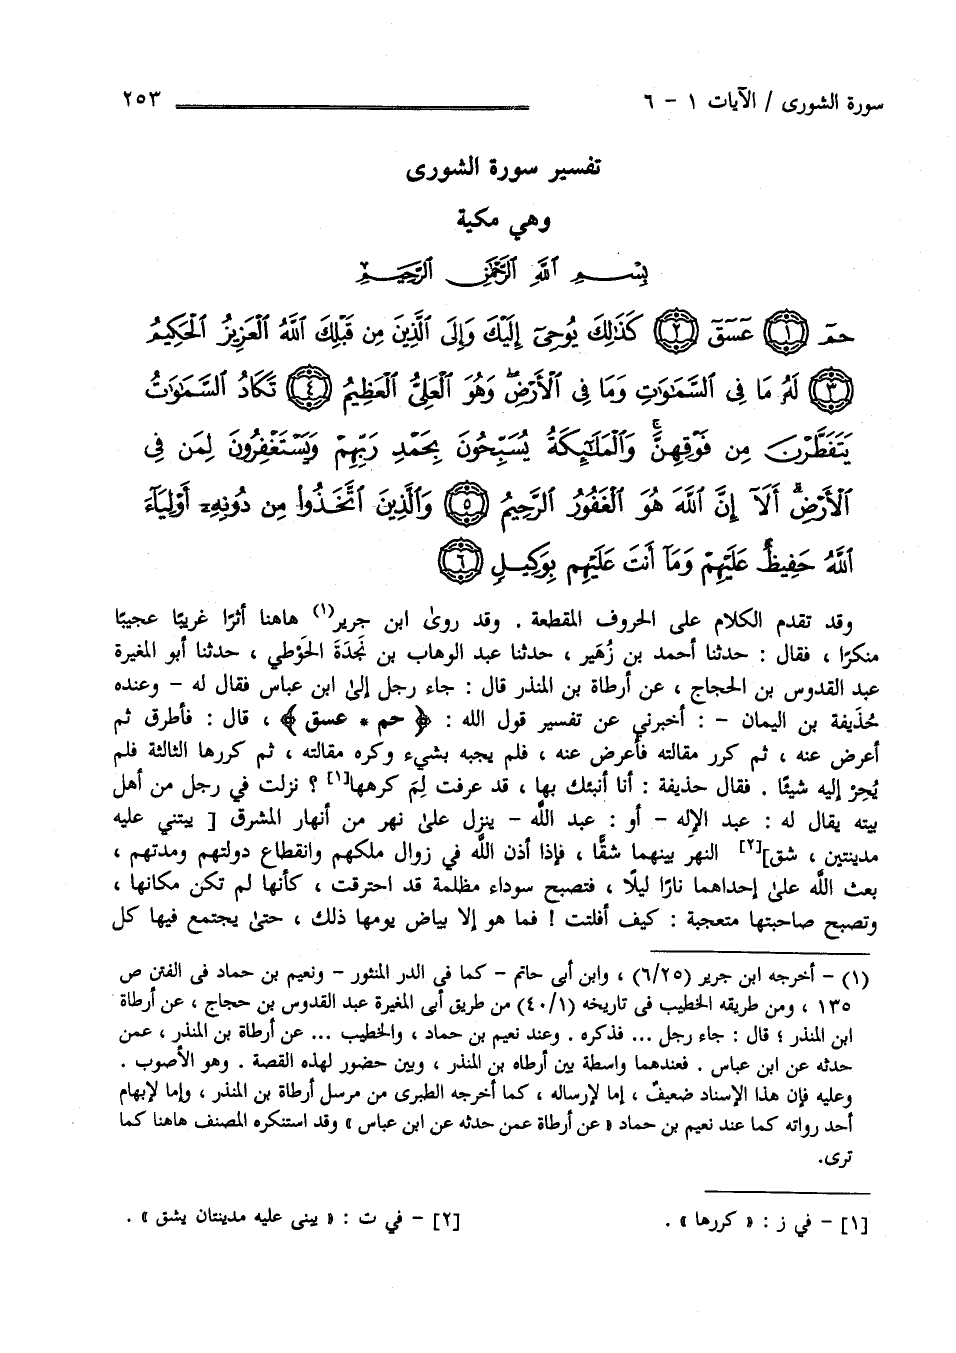 سورة الشورى / الآيات ١ - ٦ ٢٥٣
تفسير سورة الشورى
وهي مكية
بِسْمِ اللَّهِ الرَّحْمَٰنِ الرَّحِيمِ
حمٓ ﴿١﴾ عٓسٓقٓ ﴿٢﴾ كَذَٰلِكَ يُوحِىٓ إِلَيْكَ وَإِلَى ٱلَّذِينَ مِن قَبْلِكَ ٱللَّهُ ٱلْعَزِيزُ ٱلْحَكِيمُ
﴿٣﴾ لَهُۥ مَا فِى ٱلسَّمَٰوَٰتِ وَمَا فِى ٱلْأَرْضِۖ وَهُوَ ٱلْعَلِىُّ ٱلْعَظِيمُ ﴿٤﴾ تَكَادُ ٱلسَّمَٰوَٰتُ
يَتَفَطَّرْنَ مِن فَوْقِهِنَّۚ وَٱلْمَلَٰٓئِكَةُ يُسَبِّحُونَ بِحَمْدِ رَبِّهِمْ وَيَسْتَغْفِرُونَ لِمَن فِى
ٱلْأَرْضِۗ أَلَآ إِنَّ ٱللَّهَ هُوَ ٱلْغَفُورُ ٱلرَّحِيمُ ﴿٥﴾ وَٱلَّذِينَ ٱتَّخَذُوا۟ مِن دُونِهِۦٓ أَوْلِيَآءَ
ٱللَّهُ حَفِيظٌ عَلَيْهِمْ وَمَآ أَنتَ عَلَيْهِم بِوَكِيلٍ ﴿٦﴾
وقد تقدم الكلام على الحروف المقطعة . وقد روىٰ ابن جرير(١) هاهنا أثرًا غريبًا عجيبًا
منكرًا ، فقال : حدثنا أحمد بن زُهَير ، حدثنا عبد الوهاب بن نَجدَةَ الحَوْطي ، حدثنا أبو المغيرة
عبد القدوس بن الحجاج ، عن أرطاة بن المنذر قال : جاء رجل إلىٰ ابن عباس فقال له - وعنده
حُذَيفة بن اليمان - : أخبرني عن تفسير قول الله : ﴿ حم * عسق ﴾ ، قال : فأطرق ثم
أعرض عنه ، ثم كرر مقالته فأعرض عنه ، فلم يجبه بشيء وكره مقالته ، ثم كررها الثالثة فلم
يُحِرْ إليه شيئًا . فقال حذيفة : أنا أنبئك بها ، قد عرفت لِمَ كرهها[١] ؟ نزلت في رجل من أهل
بيته يقال له : عبد الإله - أو : عبد اللَّه - ينزل علىٰ نهر من أنهار المشرق [ يبتني عليه
مدينتين ، شق][٢] النهر بينهما شقًّا ، فإذا أذن اللَّه في زوال ملكهم وانقطاع دولتهم ومدتهم ،
بعث اللَّه علىٰ إحداهما نارًا ليلًا ، فتصبح سوداء مظلمة قد احترقت ، كأنها لم تكن مكانها ،
وتصبح صاحبتها متعجبة : كيف أفلتت ! فما هو إلا بياض يومها ذلك ، حتىٰ يجتمع فيها كل
(١) - أخرجه ابن جرير (٦/٢٥) ، وابن أبى حاتم - كما فى الدر المنثور - ونعيم بن حماد فى الفتن ص
١٣٥ ، ومن طريقه الخطيب فى تاريخه (٤٠/١) من طريق أبى المغيرة عبد القدوس بن حجاج ، عن أرطاة
ابن المنذر ؛ قال : جاء رجل ... فذكره . وعند نعيم بن حماد ، والخطيب ... عن أرطاة بن المنذر ، عمن
حدثه عن ابن عباس . فعندهما واسطة بين أرطاه بن المنذر ، وبين حضور لهذه القصة . وهو الأصوب .
وعليه فإن هذا الإسناد ضعيفٌ ، إما لإرساله ، كما أخرجه الطبرى من مرسل أرطاة بن المنذر ، وإما لإبهام
أحد رواته كما عند نعيم بن حماد « عن أرطاة عمن حدثه عن ابن عباس » وقد استنكره المصنف هاهنا كما
ترى.
[١] - في ز : « كررها » . [٢] - في ت : « يبنى عليه مدينتان يشق » .